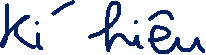 kí hiệu